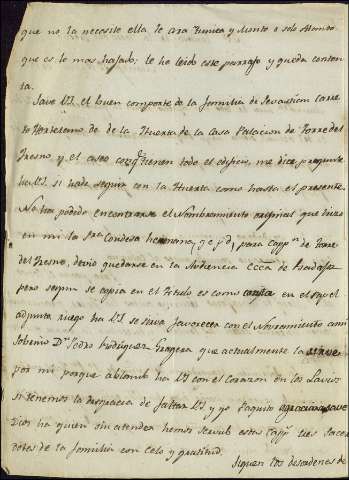 que no la necesite ella le ara tunica y Manto o solo Manto
que es lo mas hajado; le ha leido este parrafo y queda conten
ta.
Save VS. el buen comporte de la familia de Sevastian Carre
to Hortelano de la Huerta de la Casa Palacion de Torre del
Fresno y el aseo con q.e tienen todo el edificio, me dice pregunte
ha VS. si ha de seguir con la Huerta como hasta el presente.
No ha podido encontrarse el Nombramiento original que hizo
en mi la S.ra Condesa hermana, para Capp.n de Torre
del Fresno, devio quedarse en la Audiencia Ecc.ca de Badajoz
pero segun se copia en el Titulo es como consta en el papel
adjunto, ruego ha VS. se sirva favorecer con el Nonvramiento a mi
Sobrino D.n Pedro Rodriguez Grajera que actualmente la sirve
por mi porque ablando ha VS. con el corazon en los Lavios
si tenemos la desgracia de faltar VS. y yo Paquito
Dios ha quien sin atender hemos servido estas Capp.s tres Sacer
dotes de la familia con Celo y gratitud.
Siguen los desordenes de